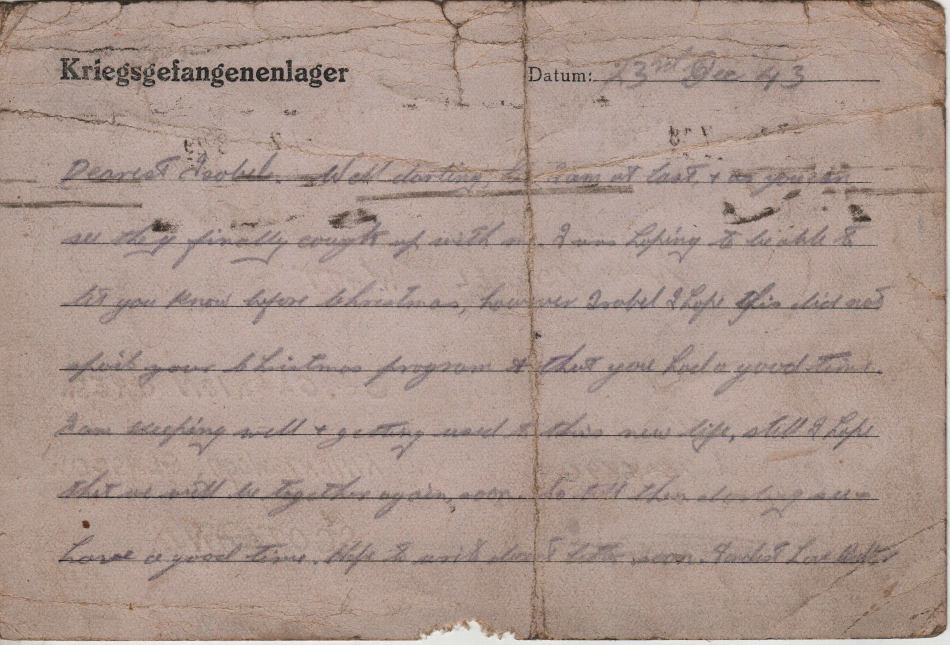 Kriegsgefangenenlager Datum: 23rd Dec 43
Dearest Isobel. Well darling, here I am at last, & as you can
see they finally caught up with me. I was hoping to be able to
let you know before Christmas, however Isobel I hope this did not
spoil your Christmas program & that you had a good time.
I am keeping well & getting used to this new life, still I hope
that we will be together again, soon. So till then darling
have a good time. Hope to write soon. Love